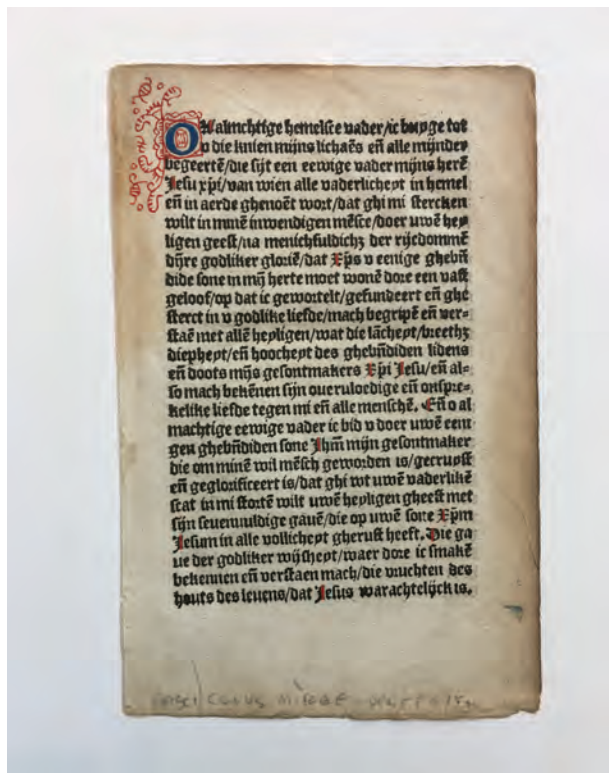 O Almachtige hemelsce vader/ic buyge tot
v die knien mijns lichaēs eñ alle mijnder
begeertē/die sijt een eewige vader mijns herē
Jesu xp̄i/van wien alle vaderlicheyt in hemel
eñ in aerde ghenoēt wort/dat ghi mi stercken
wilt in minē inwendigen mēsce/doer uwē hey
ligen geest/na menichfuldichz der rijcdommē
dijre godliker gloriē/dat Xp̄s v eenige ghebñ
dide sone in mij herte moet wonē dore een vast
geloof/op dat ic gewortelt/gefundeert eñ ghe
sterct in v godlike liefde/mach begripē eñ ver-
staē met allē heyligen/wat die lācheyt/breethz
diepheyt/eñ hoocheyt des ghebñdiden lidens
eñ doots mijs gesontmakers Xp̄i Jesu/eñ al-
so mach bekēnen sijn overvloedige eñ onspre-
kelike liefde tegen mi eñ alle menschē. Eñ o al
machtige eewige vader ic bid v doer uwē eeni
gen ghebñdiden sone Jhm̄ mijn gesontmaker
die om minē wil mēsch geworden is/gecruyst
eñ geglorificeert is/dat ghi wt uwē vaderlikē
scat in mi stortē wilt uwē heyligen gheest met
sijn sevenvuldige gavē/die op uwē sone Xp̄m
Jesum in alle vollicheyt gherust heeft. Die ga
ve der godliker wijsheyt/waer dore ic smakē
bekennen eñ verstaen mach/die vruchten des
houts des levens/dat Jesus warachtelijck is.